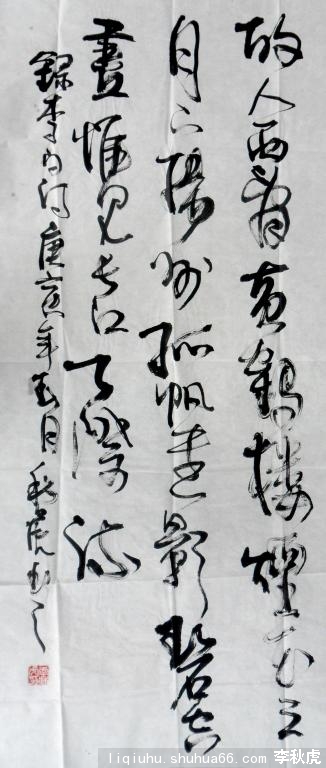 故人西辞黄鶴楼煙花三
月下揚州孤帆遠影碧空
盡惟見長江天際流
錄李白詩庚寅年春月秋虎书之
liqiuhu.shuhua66.com 李秋虎